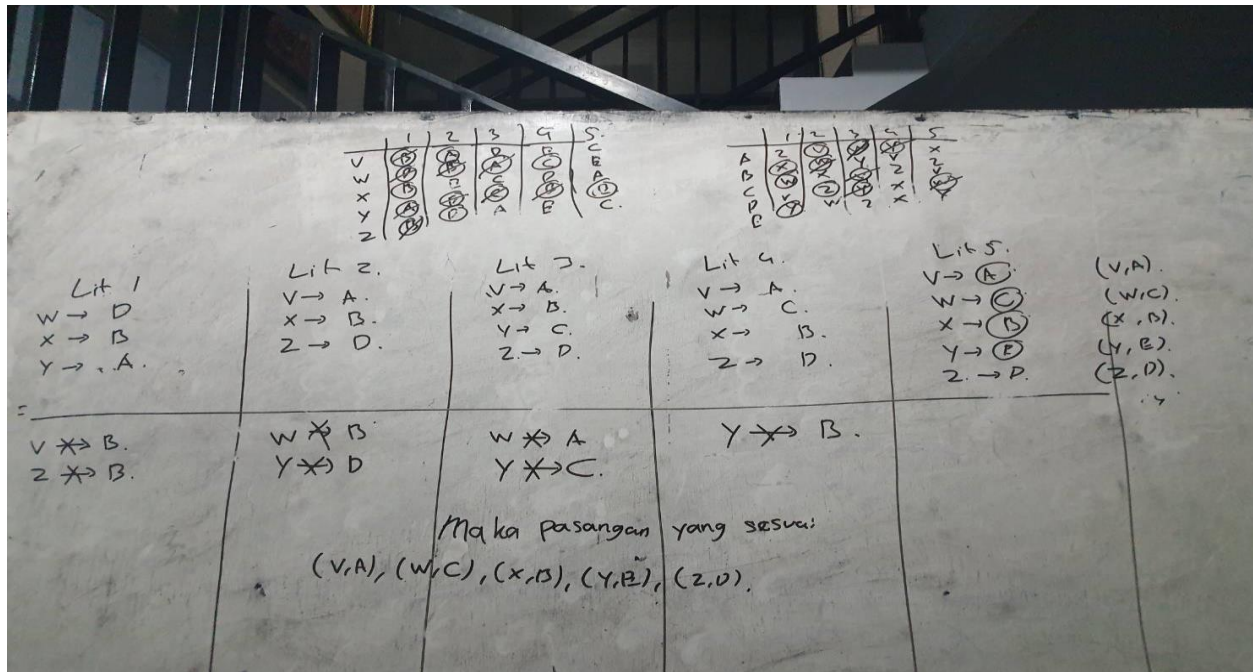 1 2 3 4 5.
V B A D E C
W D B A C E
X B E C D A
Y A D C B E
Z B D A E C.
1 2 3 4 5
A Z V W Y X
B X W Y V Z
C W Z Y X
D V Z W
E Y W Z X
Lit 1
W → D
X → B
Y → A.
V → B.
Z → B.
Lit 2.
V → A.
X → B.
Z → D.
W → B
Y → D
Lit 3.
V → A.
X → B.
Y → C.
Z. → D.
W → A
Y → C.
Lit 4.
V → A.
W → C.
X → B.
Z → D.
Y → B.
Lit 5.
V → A
W → C
X → B
Y → E
Z. → D.
(V,A).
(W,C).
(X,B).
(Y,E).
(Z,D).
Maka pasangan yang sesuai
(V,A), (W,C), (X,B), (Y,E), (Z,D).